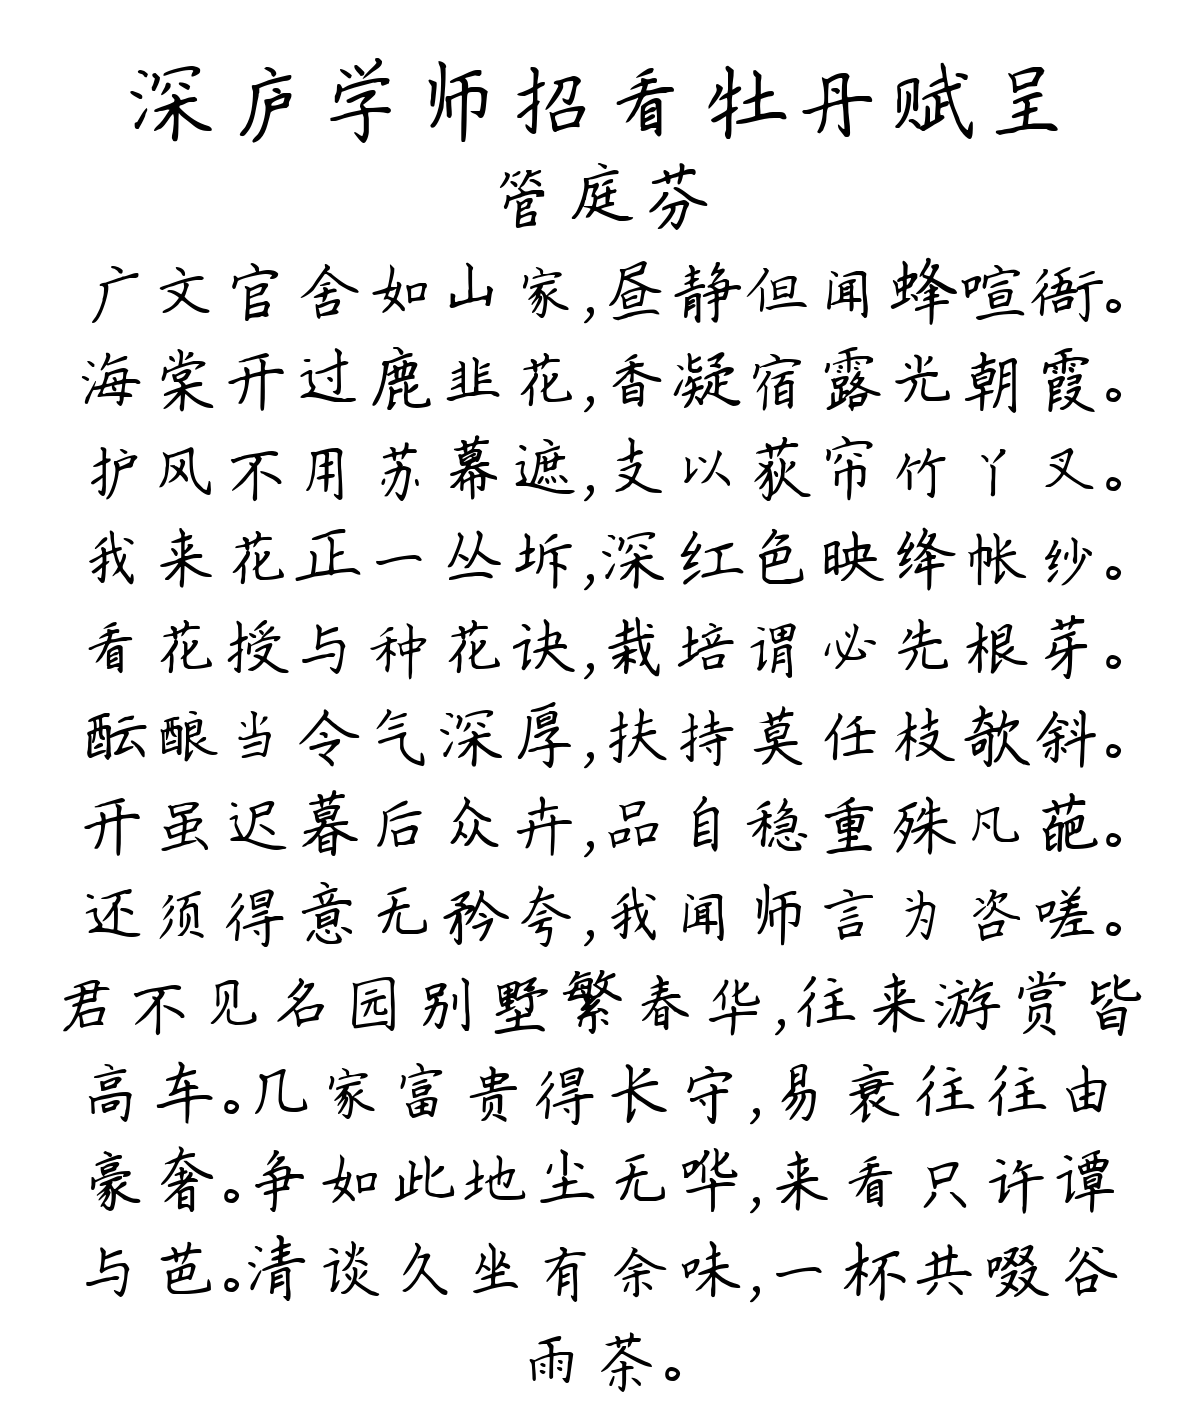 深庐学师招看牡丹赋呈
管庭芬
广文官舍如山家,昼静但闻蜂喧衙。
海棠开过鹿韭花,香凝宿露光朝霞。
护风不用苏幕遮,支以荻帘竹丫叉。
我来花正一丛坼,深红色映绛帐纱。
看花授与种花诀,栽培谓必先根芽。
酝酿当令气深厚,扶持莫任枝欹斜。
开虽迟暮后众卉,品自稳重殊凡葩。
还须得意无矜夸,我闻师言为咨嗟。
君不见名园别墅繁春华,往来游赏皆
高车。几家富贵得长守,易衰往往由
豪奢。争如此地尘无哗,来看只许谭
与芭。清谈久坐有余味,一杯共啜谷
雨茶。